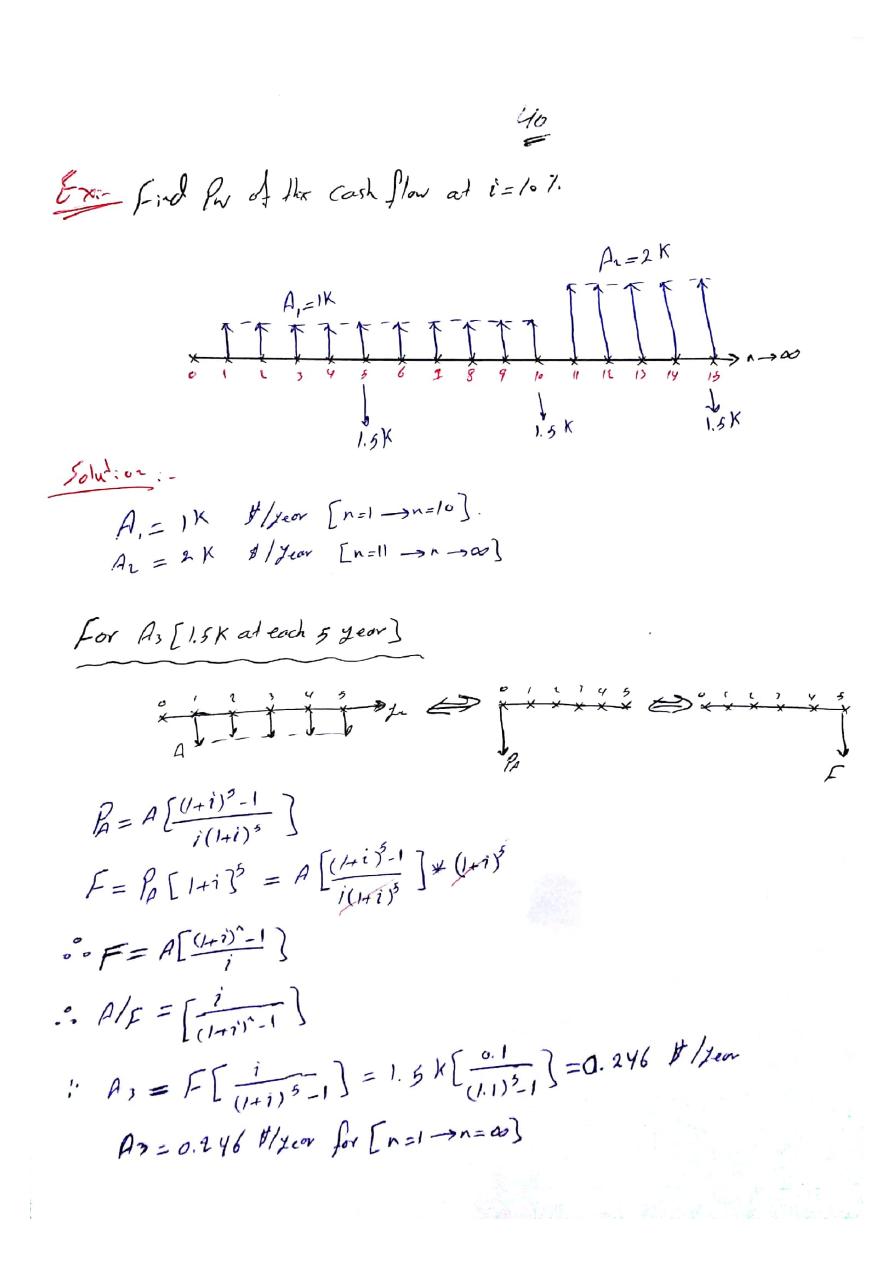 40
Ex:- Find Pw of the cash flow at i=10%.
A₂=2K
A₁=1K
n→∞
0 1 2 3 4 5 6 7 8 9 10 11 12 13 14 15
1.5K 1.5K 1.5K
Solution:-
A₁ = 1K $/year [n=1 →n=10].
A₂ = 2K $/year [n=11 →n →∞]
For A₃ [1.5K at each 5 year]
0 1 2 3 4 5 ⇔ 0 1 2 3 4 5 ⇔ 0 1 2 3 4 5
A P_A F
P_A = A[((1+i)⁵-1)/(i(1+i)⁵)]
F = P_A [1+i]⁵ = A[((1+i)⁵-1)/(i(1+i)⁵)] * (1+i)⁵
∴ F = A[((1+i)ⁿ-1)/i]
∴ A/F = [i/((1+i)ⁿ-1)]
∵ A₃ = F[i/((1+i)⁵-1)] = 1.5K[0.1/((1.1)⁵-1)] = 0.246 $/year
A₃ = 0.246 $/year for [n=1 →n=∞]